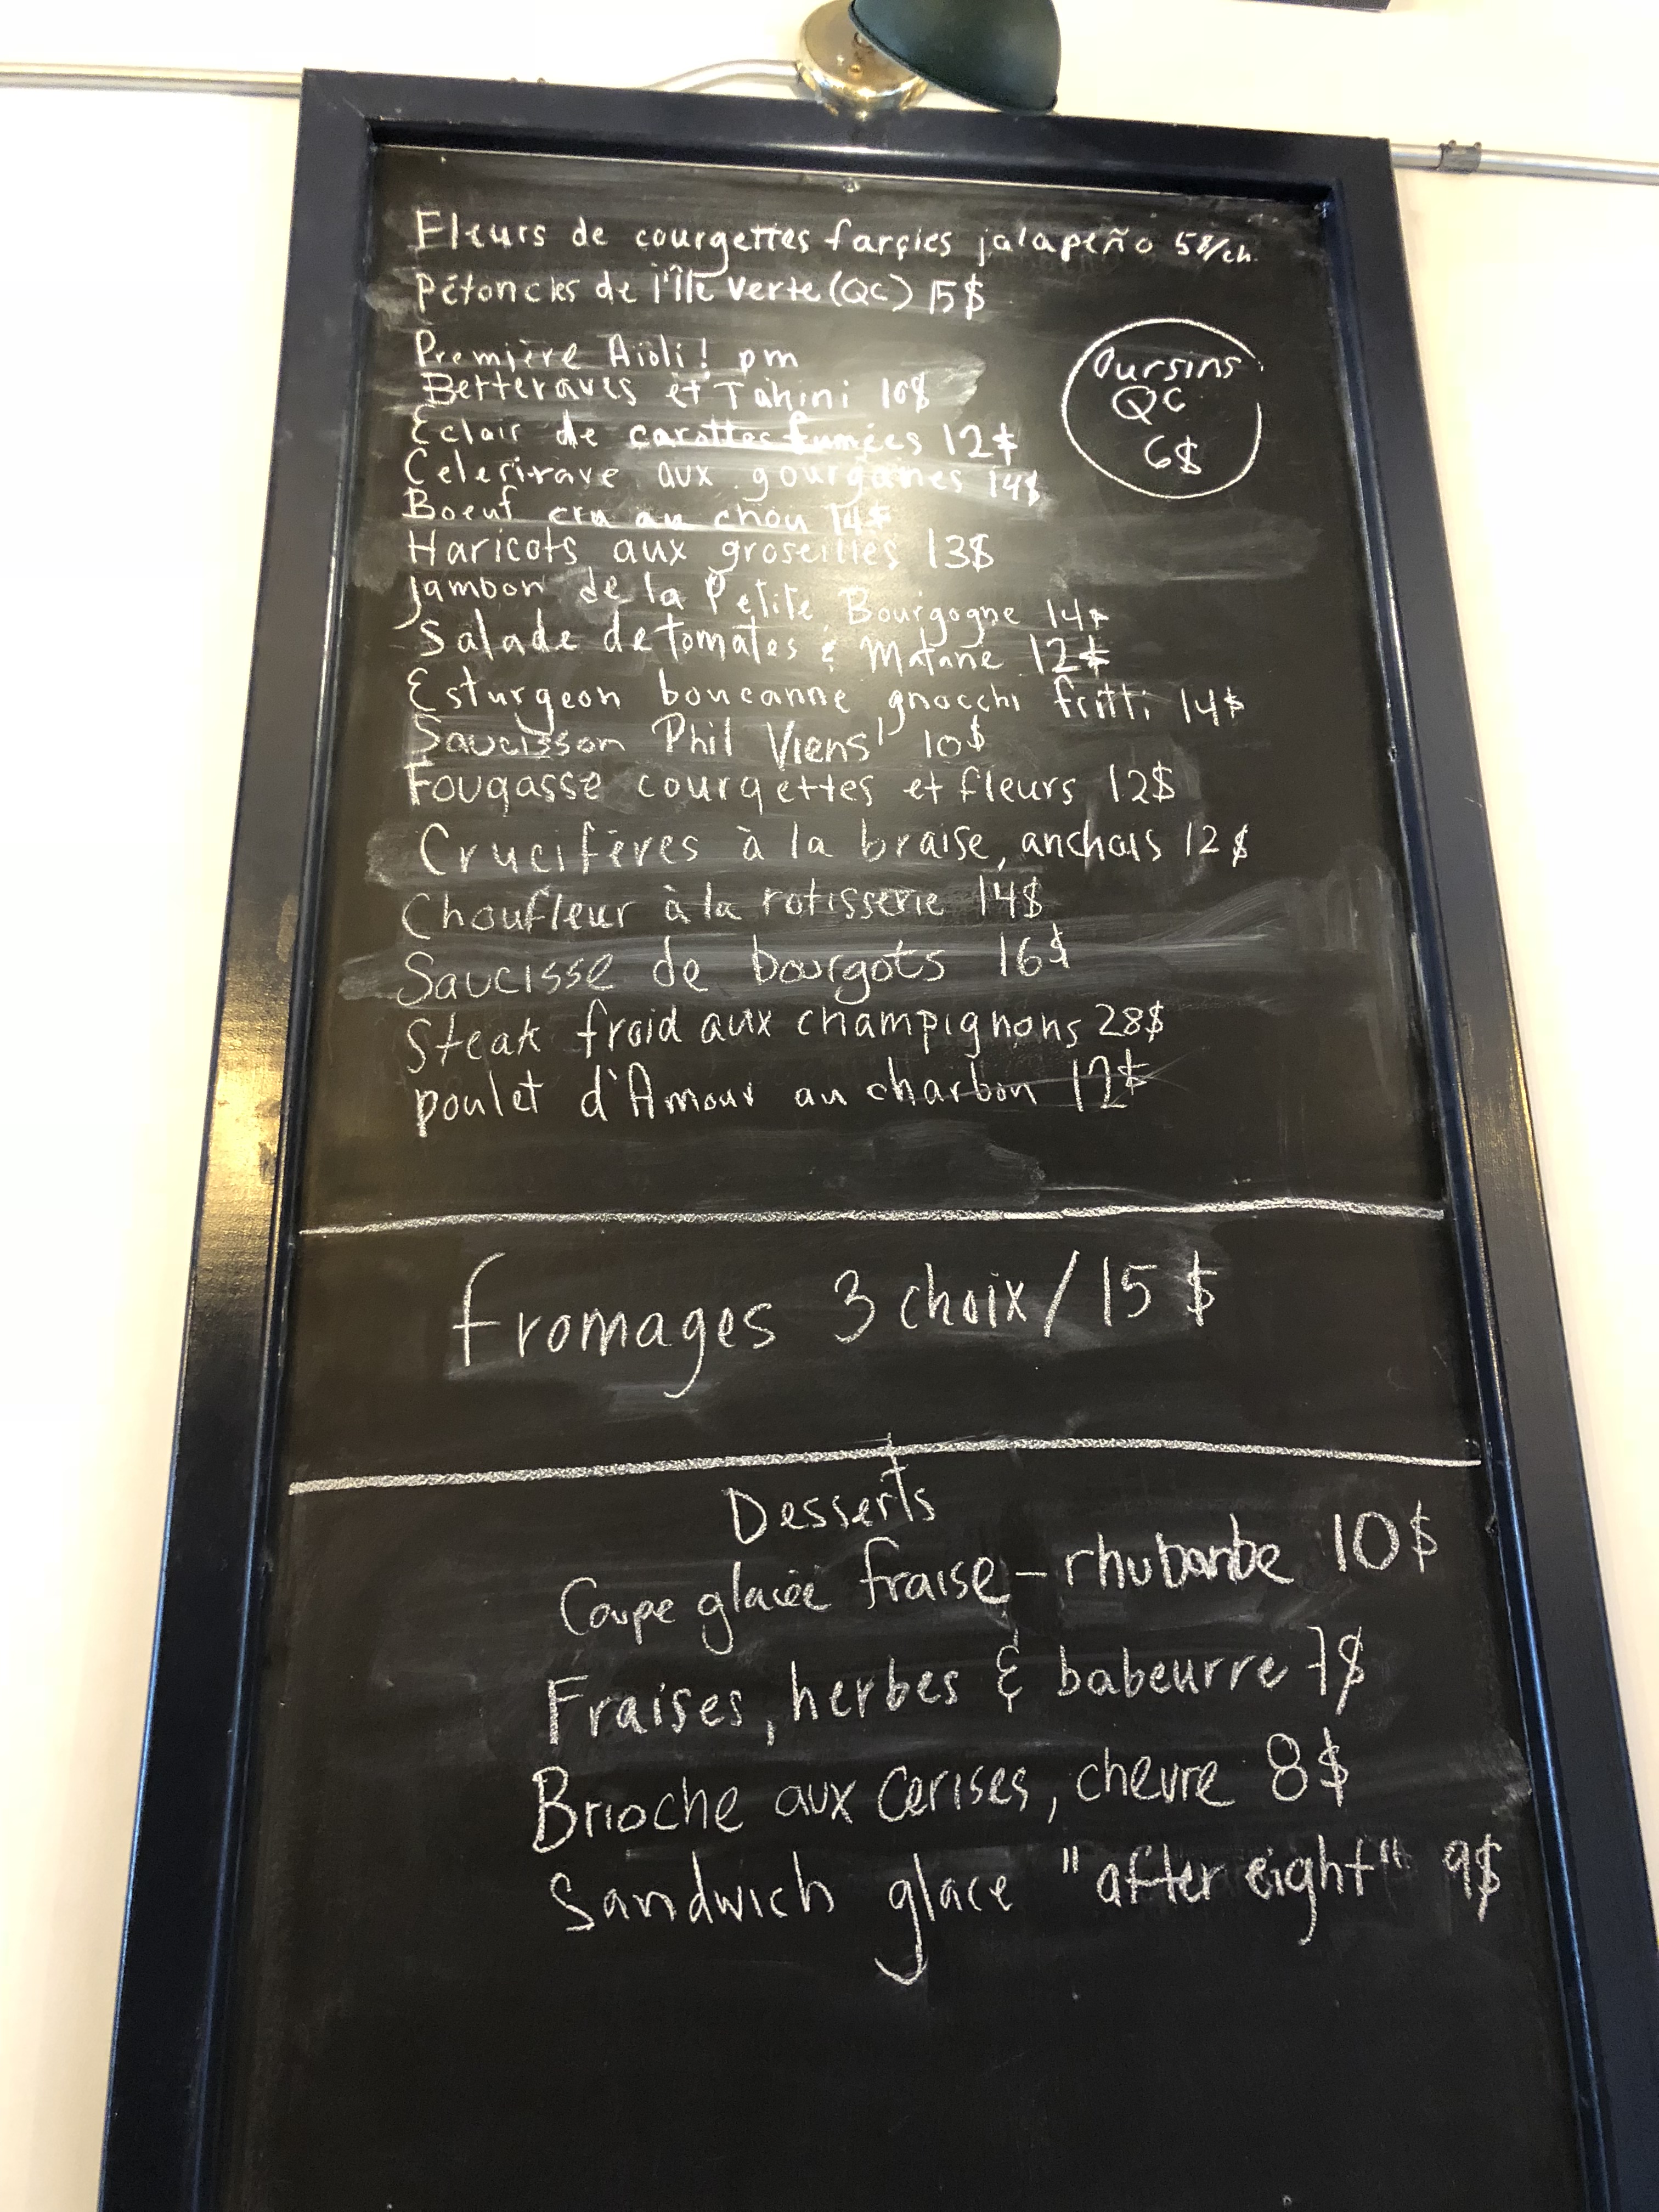 Fleurs de courgettes farçies jalapeño 5$/ch.
Pétoncles de l'Île Verte (QC) 15$
Première Aïoli! pm
Betteraves et Tahini 10$
Éclair de carottes fumées 12$
Celerirave aux gourganes 14$
Boeuf cru au chou 14$
Haricots aux groseilles 13$
Jambon de la Petite Bourgogne 14$
Salade de tomates & Matane 12$
Esturgeon boucanne gnocchi fritti 14$
Saucisson Phil Viens' 10$
Fougasse courgettes et fleurs 12$
Crucifères à la braise, anchois 12$
Choufleur à la rotisserie 14$
Saucisse de bourgots 16$
Steak froid aux champignons 28$
poulet d'Amour au charbon 12$
Oursins
QC
6$
fromages 3 choix/15$
Desserts
Coupe glacée fraise-rhubarbe 10$
Fraises, herbes & babeurre 7$
Brioche aux cerises, chevre 8$
Sandwich glace "after eight" 9$